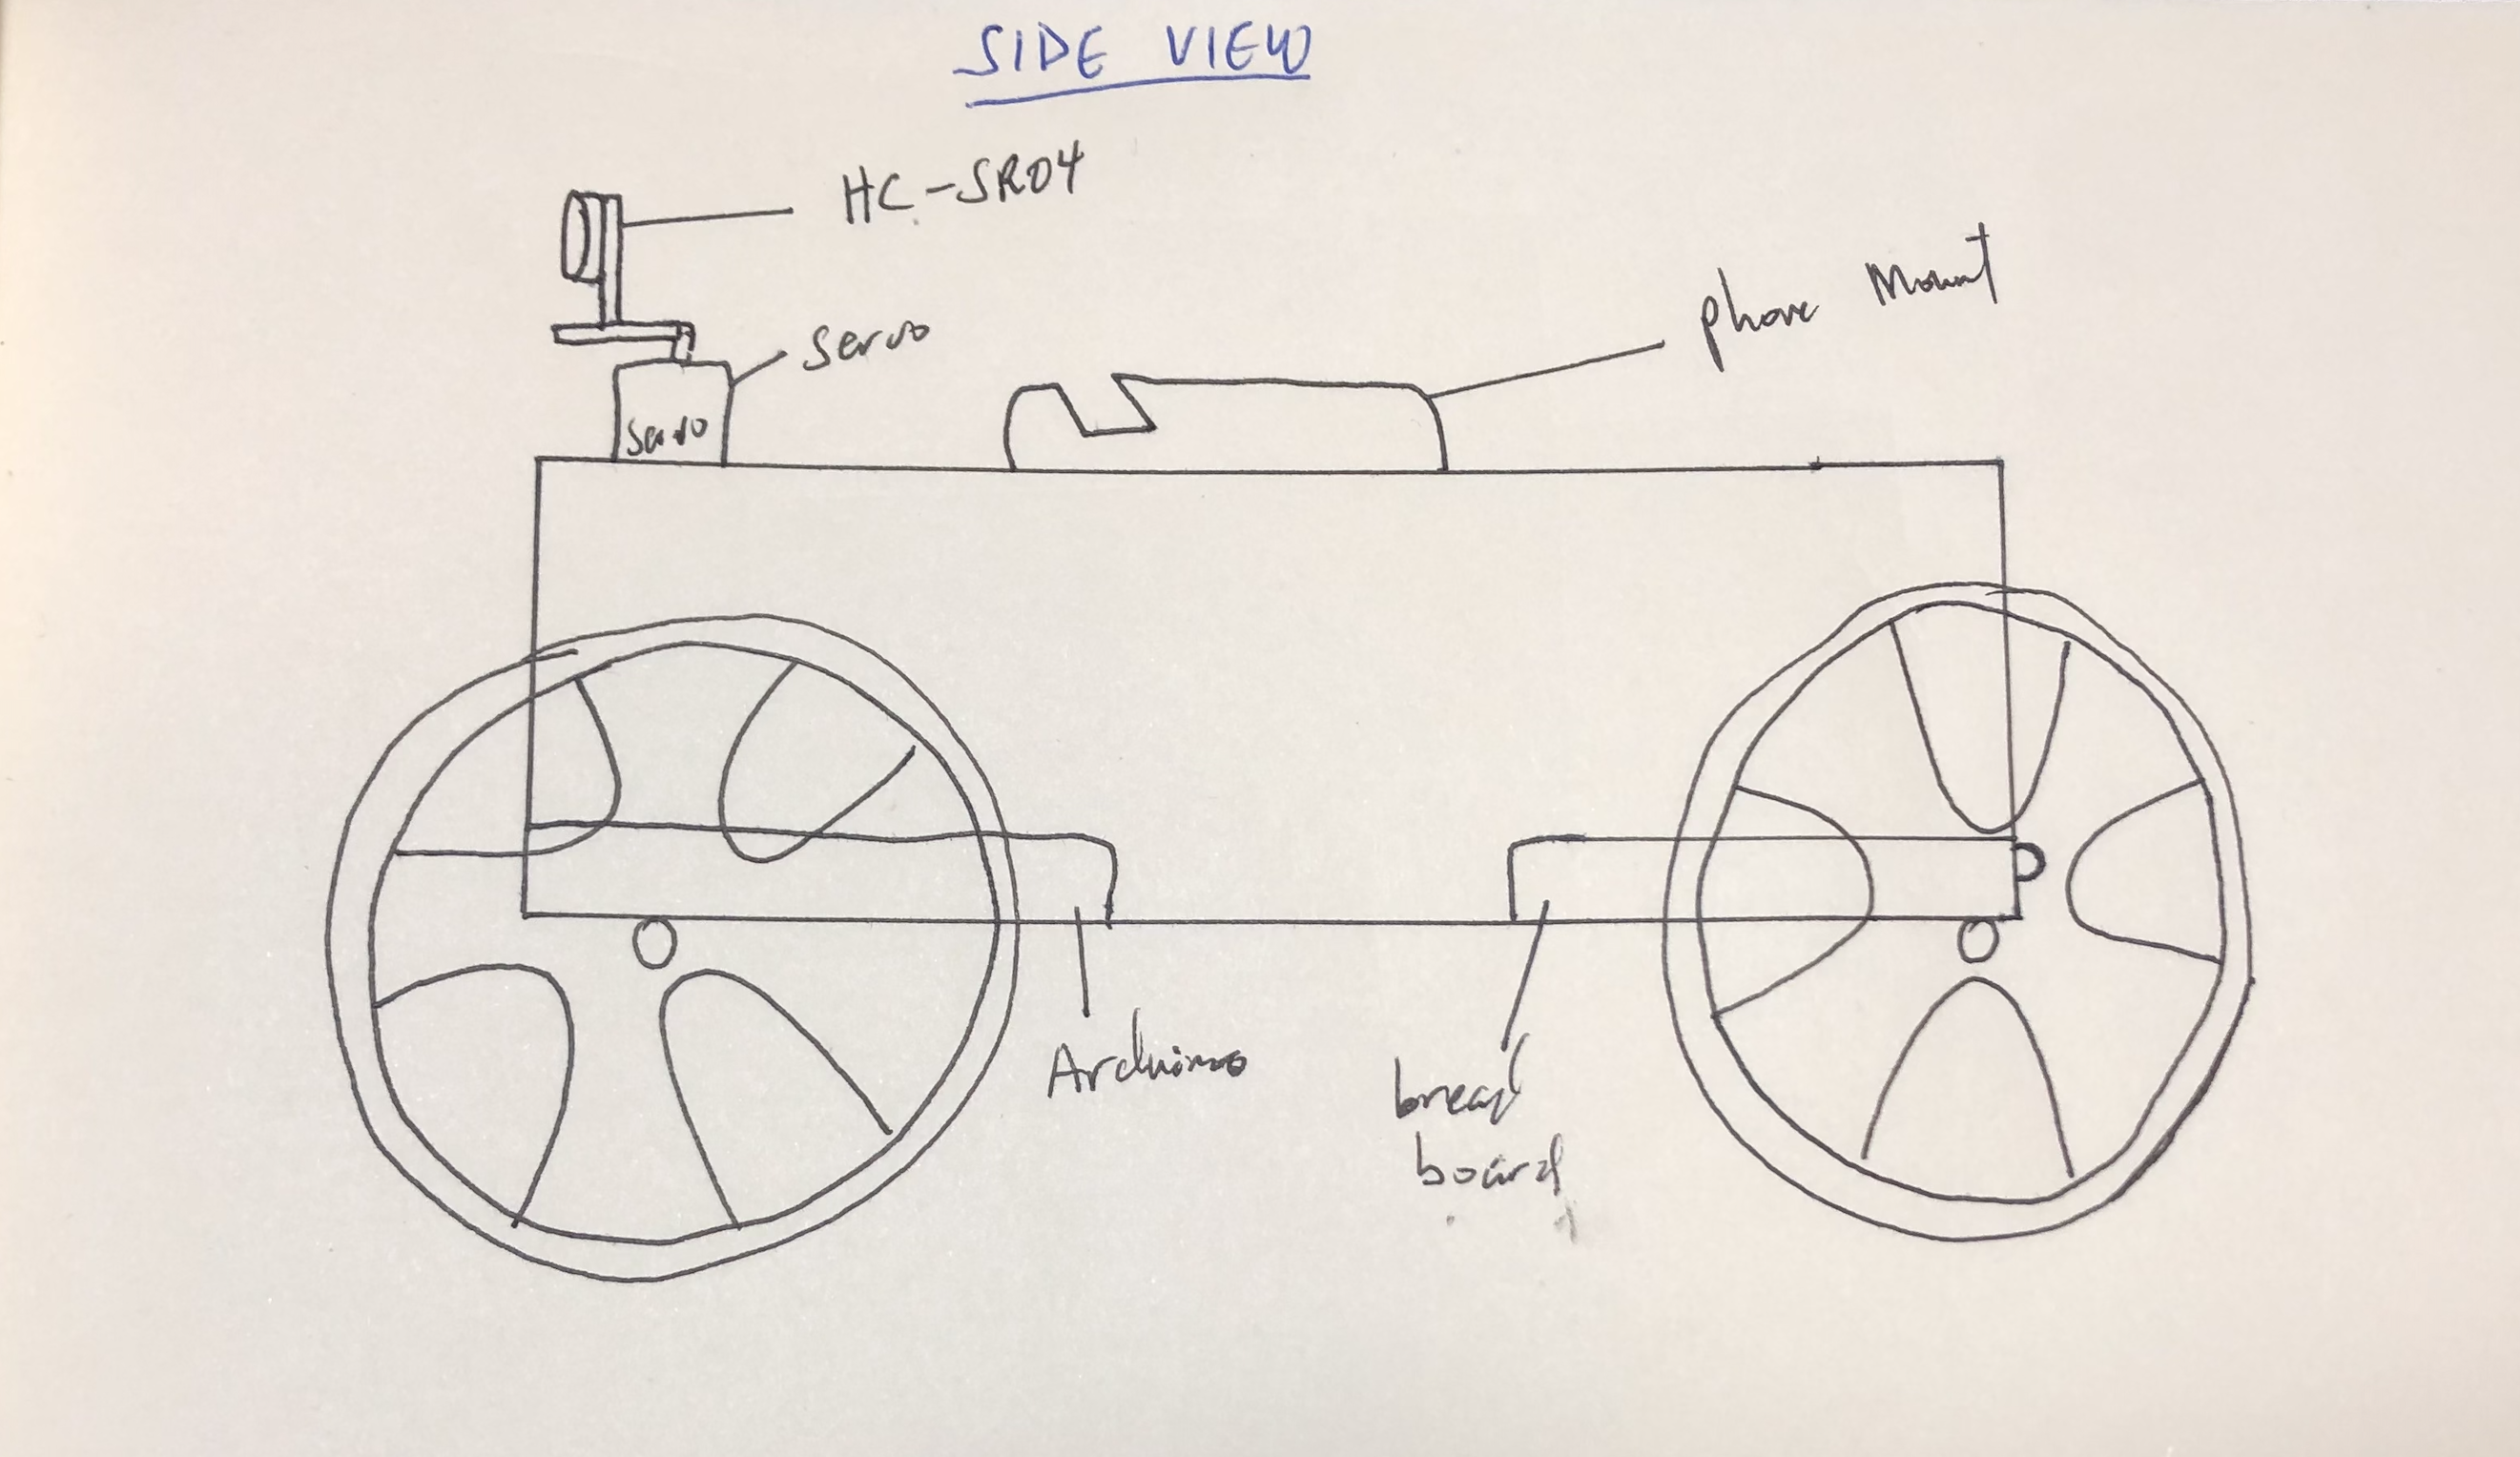 SIDE VIEW
HC-SR04
servo
phone Mount
servo
Arduino
bread
board